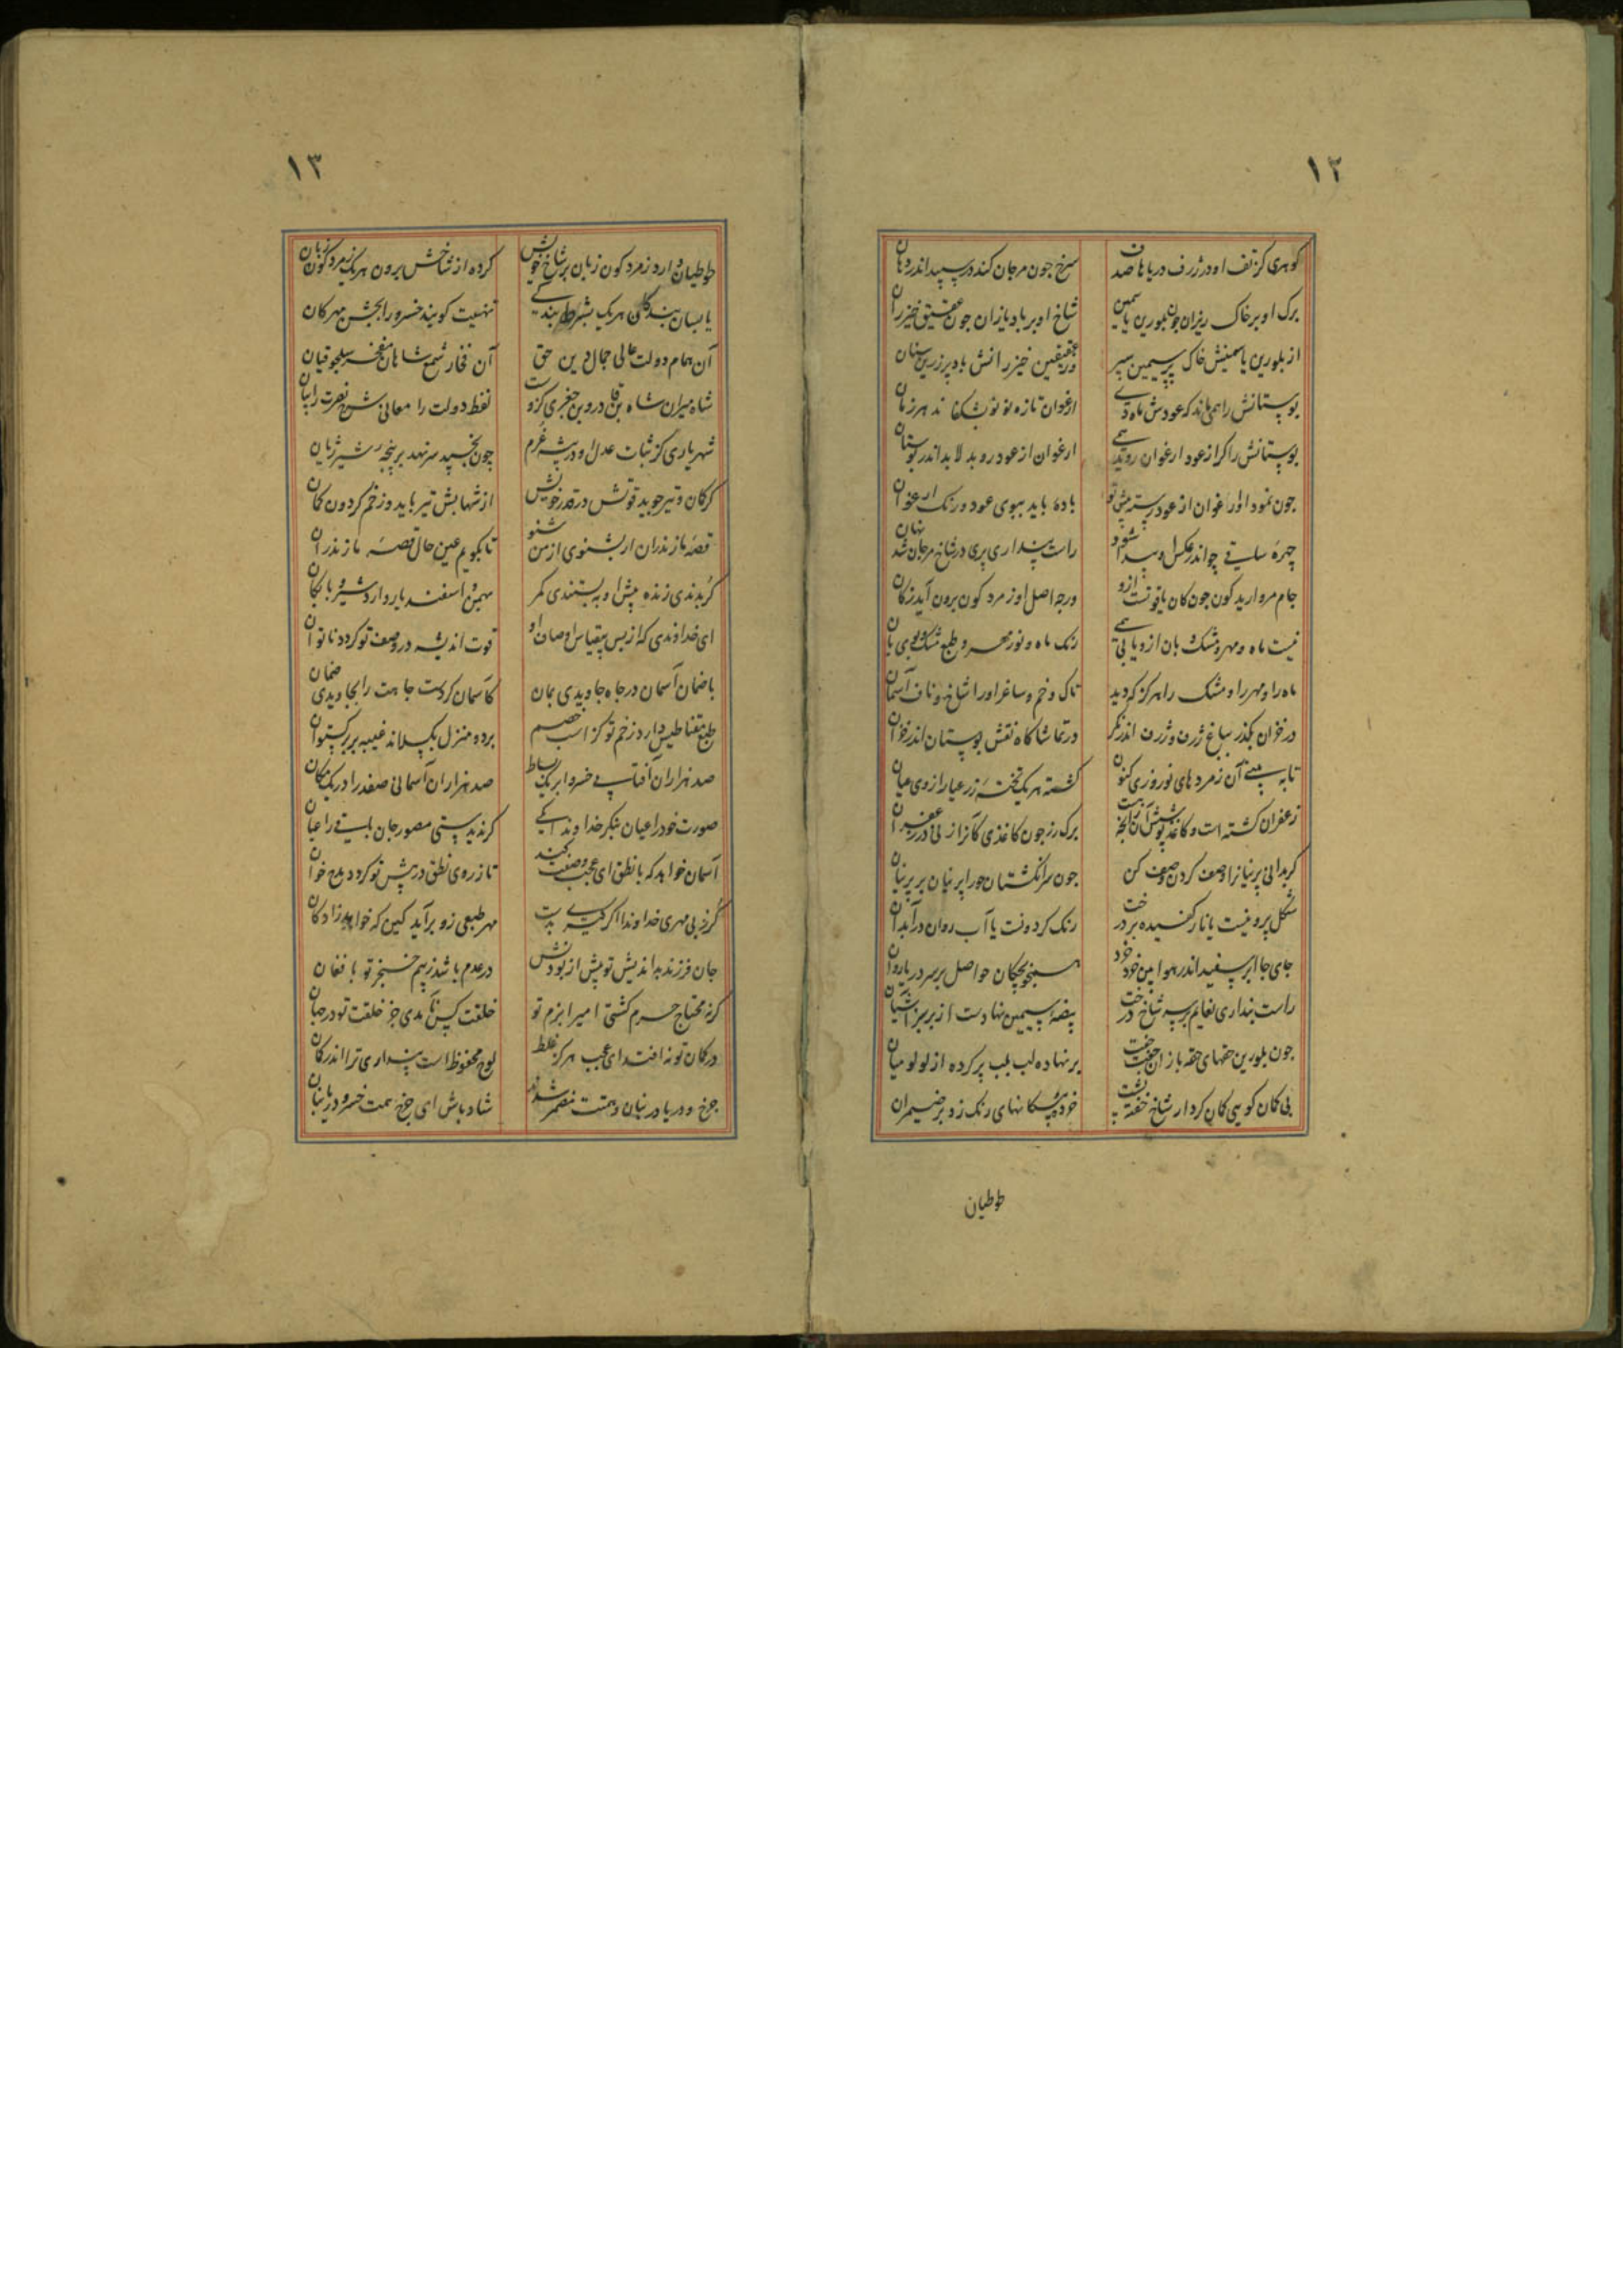 ١٢
کوهری کز تف او در ژرف دریاها صدف سرخ جون مرجان کند در سپید اندر دهان
برک او بر خاک ریزان جون بلورین یاسمین شاخ او بر باد یازان جون عقیق خیزران
از بلورین یاسمینش خاک پر سیمین سپر وز عقیقین خیزرانش باد پر زرین سنان
بوستانش را همی ماند که عودش ماه دی ارغوان تازه نو نو بشکفاند هر زمان
بوستانش را کر از عود ارغوان روید همی ارغوان از عود روید لابد اندر بوستان
جون نمود او را ارغوان از عود رسته پیش تو باده باید ببوی عود و رنک ارغوان
چهره ساقی چو اندر عکس او پیدا شود راست پنداری پری در شاخ مرجان شد نهان
جام مروارید کون جون کان یاقوتست ازو ورچه اصل او زمرد کون برون آید ز کان
نیست ماه و مهر و مشک و بان ازو یابی همی رنک ماه و نور مهر و طبع مشک و بوی بان
ماه را و مهر را و مشک را هرکز که دید تاک و خم و ساغر او را شاخ و ناف آسمان
در خزان بکذر بباغ ژرف و ژرف اندر نکر در تماشاکاه نقش بوستان اندر خزان
تا به بینی آن زمردهای نوروزی کنون کشته هر یک تخته زر عیار از وی عیان
زعفران کشته است و کاغذ پوشش آن آبست برک رز جون کاغذی کآنرا زنی در زعفران
کر بدانی پرنیانرا وصف کردن وصف کن جون سر انکشتان حورا پرنیان بر پرنیان
شکل پروینست یا نار کفیده بر درخت رنک کردونست یا آب روان در آبدان
جای جا ابر سپید اندر هوا بین خرد خرد همچو بچکان حواصل بر سر دریا روان
راست پنداری نعایم بر سر شاخ درخت بیضه سیمین نهادست از بر سبز آشیان
جون بلورین حقهای حقه بازان جفت جفت بر نهاده لب بلب پر کرده از لولو میان
بی کمان کوهی کمان کردار شاخ خفته پشت خرده پیکانهای رنک زد بر ضیمران
طوطیان
١٣
طوطیان دارد زمرد کون زبان بر شاخ خویش کرده از شاخش برون هر یک زمرد کون زبان
یا بسان بندکان هر یک بشرط بندکی تهنیت کویند خسرو را بجشن مهرکان
آن همام دولت عالی جمال دین حق آن فخار شمع شاهان مفخر سلجوقیان
شاه میران شاه بن قاورد بن جغری کزوست لفظ دولت را معانی شرح نصرت را بیان
شهریاری کز ثبات عدل او در بیشه غرم چون بخسپد سر نهد بر پنجه شیر ژیان
کر کمان و تیر جوید قوتش در قدر خویش از شهابش تیر باید وز خم کردون کمان
قصه مازندران ار بشنوی از من شنو تا بکویم عین حال قصه مازندران
کر بدندی زنده پیش او به بستندی کمر بهمن و اسفندیار و اردشیر و بابکان
ای خداوندی که از بس بیقیاس اوصاف او قوت اندیشه در وصف تو کردد ناتوان
با ضمان آسمان در جاه جاویدی بمان کآسمان کردست جاهت را بجاویدی ضمان
طبع مغناطیس دارد زخم تو کز اسب خصم برده منزل بکسلاند غیبه بر برکستوان
صد هزاران آفتابی خسروا بر یک بساط صد هزاران آسمانی صفدرا در یک مکان
صورت خود را عیان بنکر خداوندا یکی کر ندیدستی مصور جان باقی را عیان
آسمان خواهد که با نطق ای عجب وصفت کند تا ز روی نطق در پیش تو کردد مدح خوان
کر ز بی مهری خداوندا اکر کینه بدست مهر طبعی زو برآید کین که خواهد زاد کان
جان فرزند بداندیش تو پیش از بودنش در عدم باشد ز بیم خنجر تو با فغان
کر نه محتاج حرم کشتی امیرا بزم تو خلقت کس نآمدی جز خلقت تو در جهان
در کمان تو نه افتد ای عجب هرکز غلط لوح محفوظ است پنداری ترا اندر کمان
جرخ و دریا در بنان و همتت مضمر شدند شاد باش ای جرخ همت خسرو دریا بنان